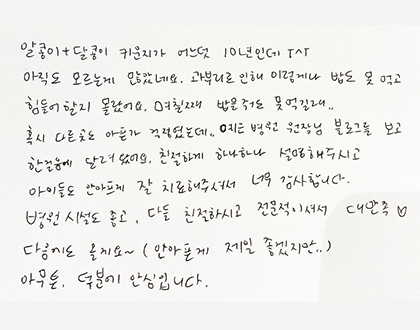 알콩이+달콩이 키운지가 어느덧 10년인데 TAT
아직도 모르는게 많았네요. 과부리로 인해 이렇게나 밥도 못 먹고
힘들어할지 몰랐어요. 며칠째 밥을줘도 못먹길래..
혹시 다른곳도 아픈가 걱정했는데.. 병원 원장님 블로그를 보고
한걸음에 달려왔어요. 친절하게 하나하나 설명해주시고
아이들도 안아프게 잘 치료해주셔서 너무 감사합니다.
병원 시설도 좋고, 다들 친절하시고 전문적이셔서 대만족♡
다음에도 올게요~ (안아픈게 제일 좋겠지만..)
아무튼, 덕분에 안심입니다.